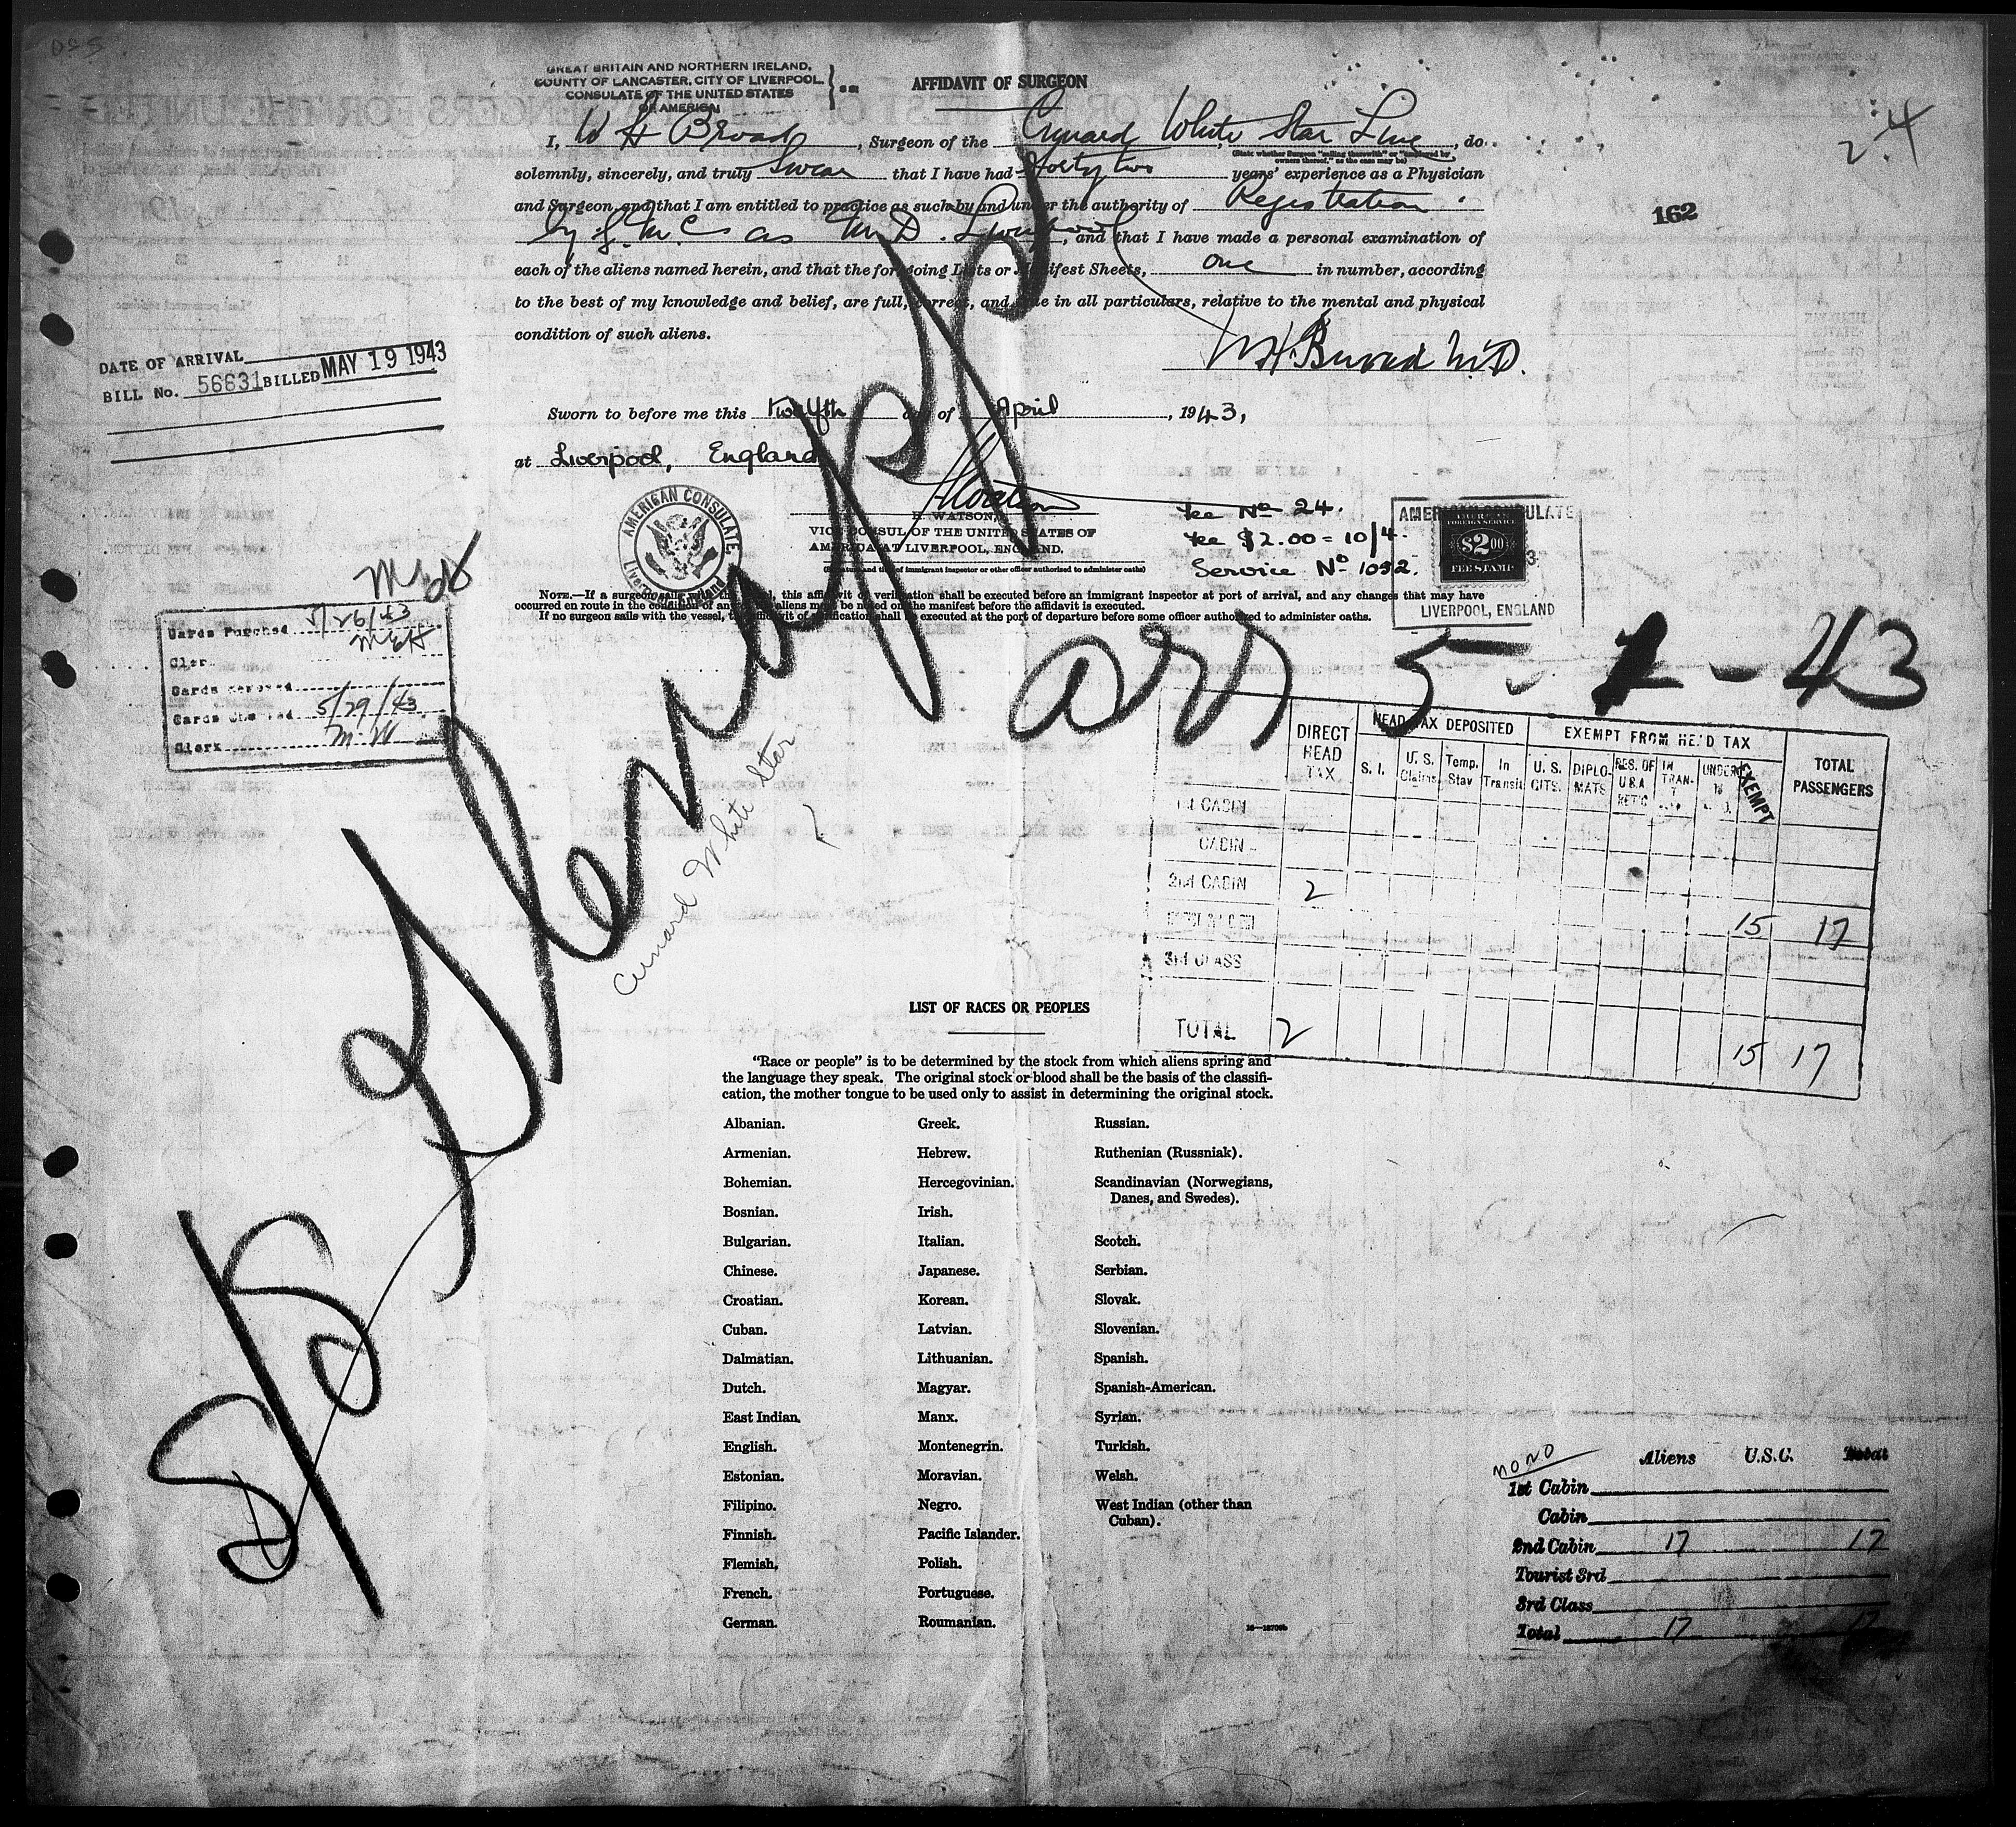 GREAT BRITAIN AND NORTHERN IRELAND,
COUNTY OF LANCASTER, CITY OF LIVERPOOL.
CONSULATE OF THE UNITED STATES
OF AMERICA
} ss
AFFIDAVIT OF SURGEON
2.4
162
I, W H Broad, Surgeon of the Cunard White Star Line, do
(State whether Surgeon "sailing therewith" or "employed by owners thereof," as the case may be)
solemnly, sincerely, and truly Swear that I have had forty two years' experience as a Physician
and Surgeon and that I am entitled to practice as such by and under the authority of Registration
by G.M.C. as M.D. Liverpool, and that I have made a personal examination of
each of the aliens named herein, and that the foregoing Lists or Manifest Sheets, one in number, according
to the best of my knowledge and belief, are full, correct, and true in all particulars, relative to the mental and physical
condition of such aliens.
M.D.
DATE OF ARRIVAL
BILL No. 56631 BILLED MAY 19 1943
Sworn to before me this Twelfth day of April, 1943,
at Liverpool, England
AMERICAN CONSULATE,
H. WATSON,
VICE CONSUL OF THE UNITED STATES OF
AMERICA AT LIVERPOOL, ENGLAND.
(Signature and title of immigrant inspector or other officer authorized to administer oaths)
Fee No 24.
Fee $2.00 = 10/4.
Service No 1092.
AMERICAN CONSULATE
FOREIGN SERVICE
$2.00
FEE STAMP
LIVERPOOL, ENGLAND
NOTE.—If a surgeon sails with the vessel, this affidavit of verification shall be executed before an immigrant inspector at port of arrival, and any changes that may have
occurred en route in the condition of any of the aliens must be noted on the manifest before the affidavit is executed.
If no surgeon sails with the vessel, the affidavit of verification shall be executed at the port of departure before some officer authorized to administer oaths.
Cards Punched 5/26/43
MEH
Cler.
Cards
Cards Checked 5/29/43
Clerk M.W
S/S
arr 5-1-43
Cunard White Star
DIRECT HEAD TAX
HEAD TAX DEPOSITED
EXEMPT FROM HEAD TAX
TOTAL PASSENGERS
S. I.
U. S. Claims
Temp. Stay
In Transit
U. S. CITS.
DIPLOMATS
RES. OF U.S.A. RET'G
IN TRANT
UNDER 16
EXEMPT
1st CABIN
CABIN
2nd CABIN 2
15 17
3rd CLASS
TOTAL 2 15 17
LIST OF RACES OR PEOPLES
"Race or people" is to be determined by the stock from which aliens spring and
the language they speak. The original stock or blood shall be the basis of the classifi-
cation, the mother tongue to be used only to assist in determining the original stock.
Albanian.
Armenian.
Bohemian.
Bosnian.
Bulgarian.
Chinese.
Croatian.
Cuban.
Dalmatian.
Dutch.
East Indian.
English.
Estonian.
Filipino.
Finnish.
Flemish.
French.
German.
Greek.
Hebrew.
Hercegovinian.
Irish.
Italian.
Japanese.
Korean.
Latvian.
Lithuanian.
Magyar.
Manx.
Montenegrin.
Moravian.
Negro.
Pacific Islander.
Polish.
Portuguese.
Roumanian.
Russian.
Ruthenian (Russniak).
Scandinavian (Norwegians,
Danes, and Swedes).
Scotch.
Serbian.
Slovak.
Slovenian.
Spanish.
Spanish-American.
Syrian.
Turkish.
Welsh.
West Indian (other than
Cuban).
MONO
Aliens U.S.C. Total
1st Cabin
Cabin
2nd Cabin 17 17
Tourist 3rd
3rd Class
Total 17 17